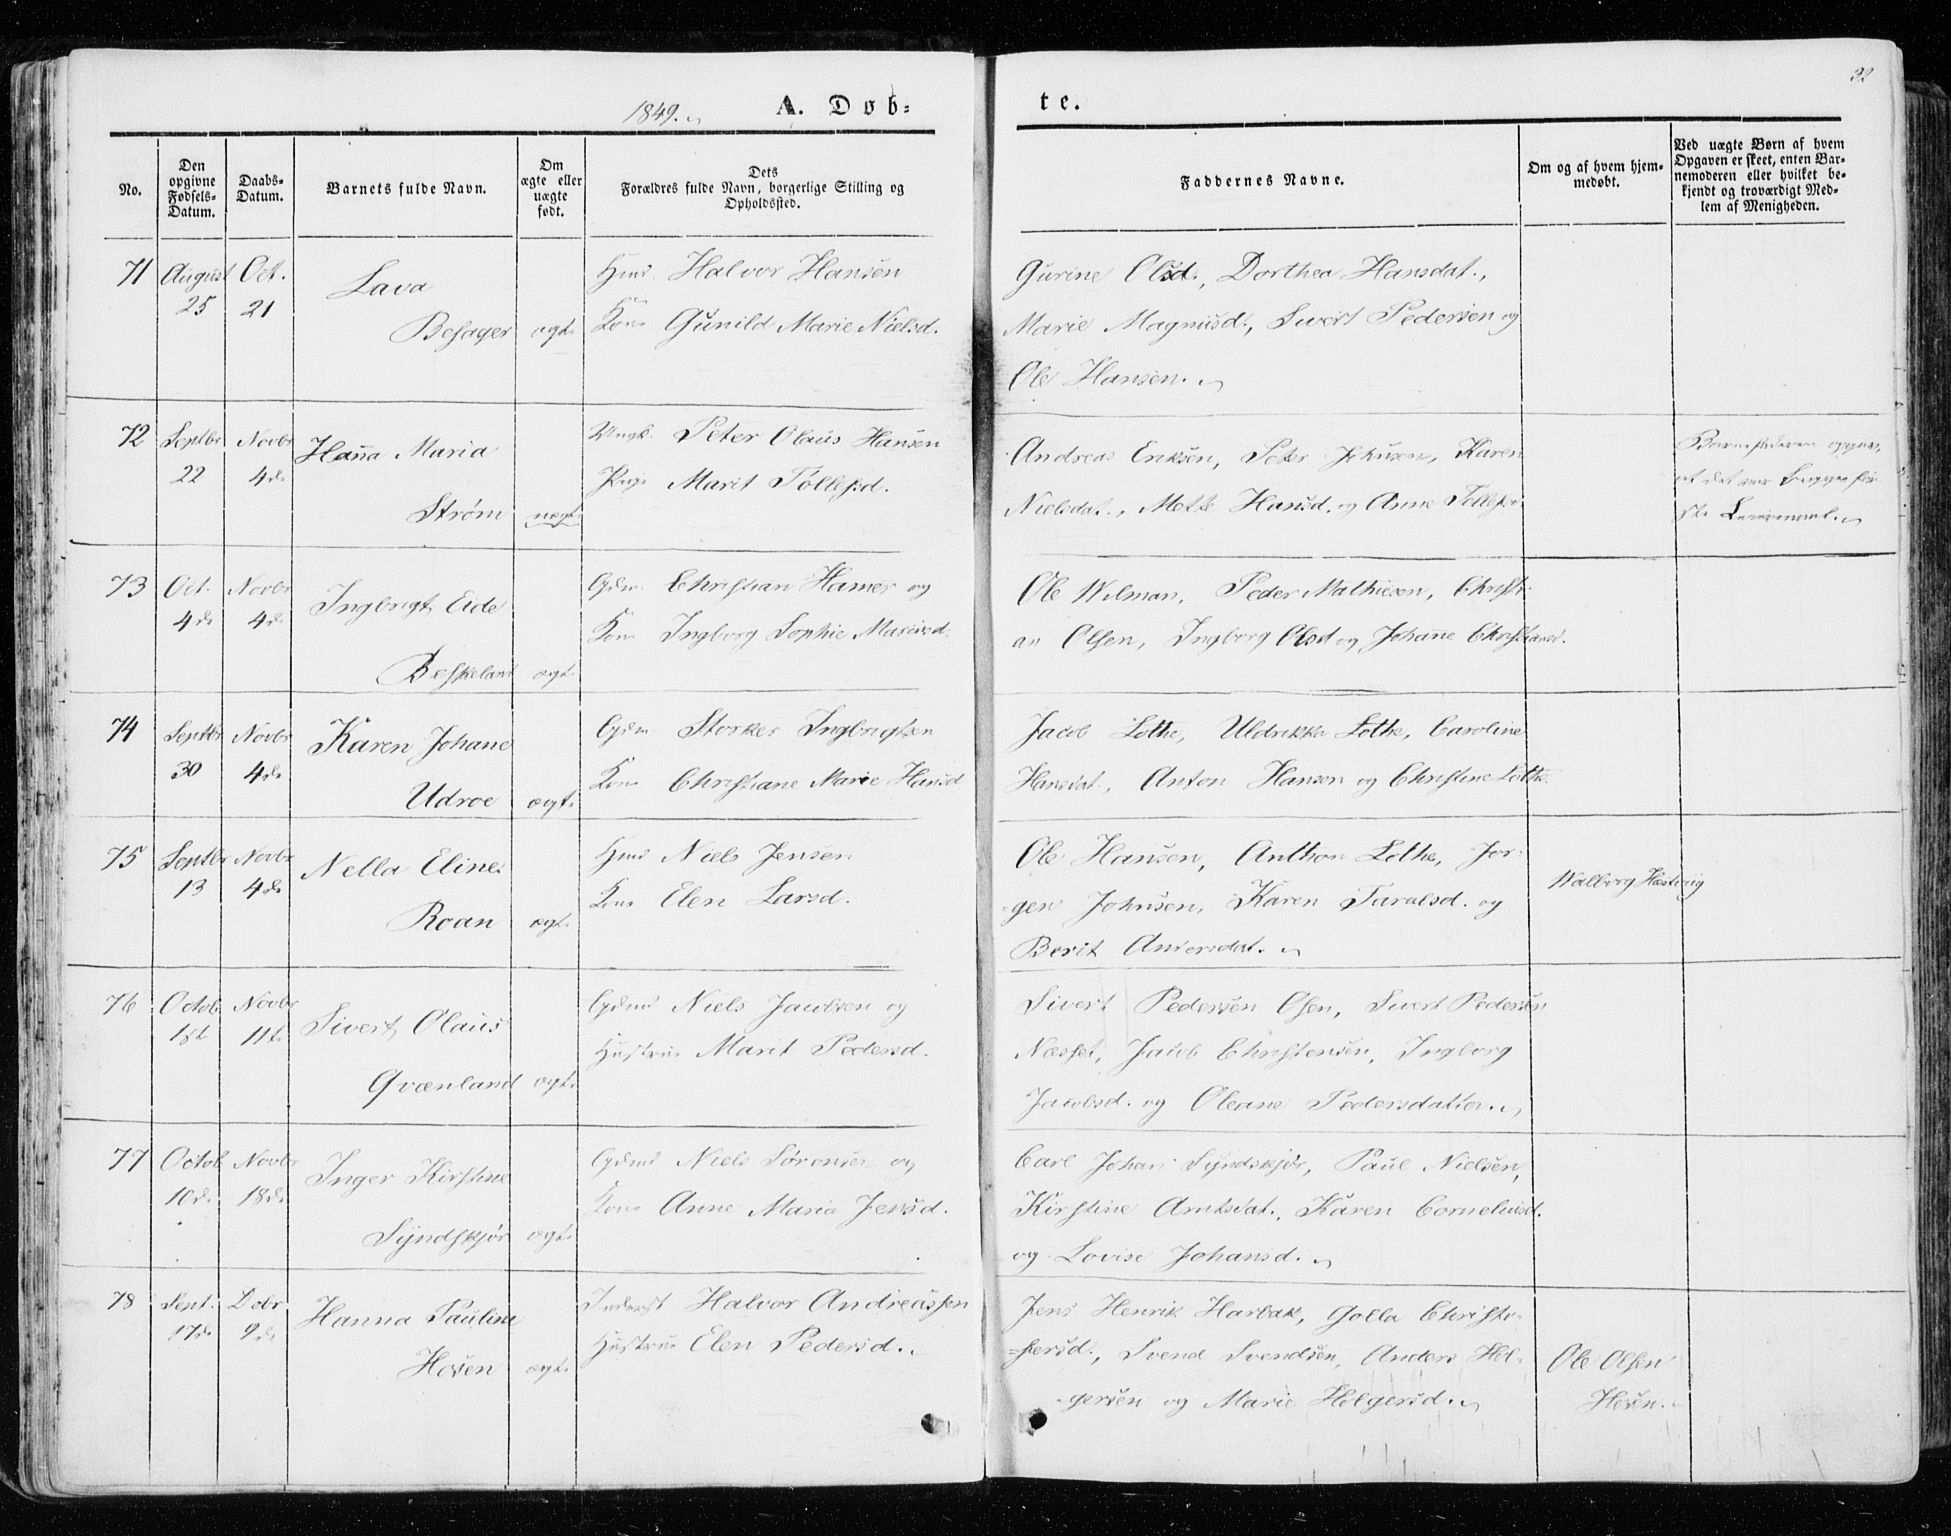 1849.
A. Døb=
te.
32
No.
Den opgivne Fødsels-Datum.
Daabs-Datum.
Barnets fulde Navn.
Om ægte eller uægte født.
Dets Forældres fulde Navn, borgerlige Stilling og Opholdssted.
Faddernes Navne.
Om og af hvem hjemmedøbt.
Ved uægte Børn af hvem Opgaven er skeet, enten Barnemoderen eller hvilket bekjendt og troværdigt Medlem af Menigheden.
71 August Oct. Lava
25 21
Besager ægt.
Hmd Halvor Hansen
Kone Gunild Marie Nielsd.
Gurine Olsd., Dorthea Hansdat.,
Marie Magnusd., Sivert Pedersen og
Ole Hansen.
72 Septbr Novbr Hanna Maria
22 4de
Strøm uægt.
Ungk. Peter Olaus Hansen
Pige Marit Tollefsd.
Andreas Eriksen, Peter Johnsen, Karen
Nielsdat., Mette Hansd. og Anne
Barnefaderen
at det var Begges før-
ste Leiermaal.
73 Oct. Novbr Ingbrigt Eide
4de 4de
Beskeland ægt.
Gdm. Christian Hamer og
Kone Ingborg Sophie
Ole Wilman, Peder Mathiesen, Christi-
an Olsen, Ingborg Olsd og Johanne Christiansd.
74 Septbr Novbr Karen Johane
30 4de
Udroe ægt.
Gdm. Storker Ingbrigtsen
Kone Christiane Marie Hansd
Jacob Lothe, Uldrikka Lothe, Caroline
Hansdat., Anton Hansen og Christine Lothe.
75 Septbr Novbr Nella Eline
13 4de
Roan ægt.
Hmd Niels Jensen
Kone Elen Larsd.
Ole Hansen, Anthon Lothe, Jør-
gen Johnsen, Karen Taralsd. og
Berit Andersdat.
Walborg
76 Octob Novbr Sivert Olaus
18d 11t
Qvænland ægt.
Gdmd Niels Jacobsen og
Hustrue Marit Pedersd.
Sivert Pedersen Osen, Sivert Pedersen
Næsset, Jacob Christensen, Ingborg
Jacobsd. og Oleane Pedersdatter.
77 Octob Novbr Inger Kirstine
10de 18de
Syndskjør ægt.
Gdmd Niels Sørensen og
Kone Anne Maria Jensd.
Carl Johan Syndskjør, Paul Nielsen,
Kirstine Arntsdat., Karen Corneliusd.
og Lovise Johansd.
78 Sept. Debr Hanna Pauline
17de 9de
Hosen ægt.
Inderst Halvor Andreassen
Hustrue Elen Pedersd.
Jens Henrik Harbak, Golla Christo-
fersd., Svend Svendsen, Anders Hol-
gersen og Marie Holgersd.
Ole Olsen
Hosen.